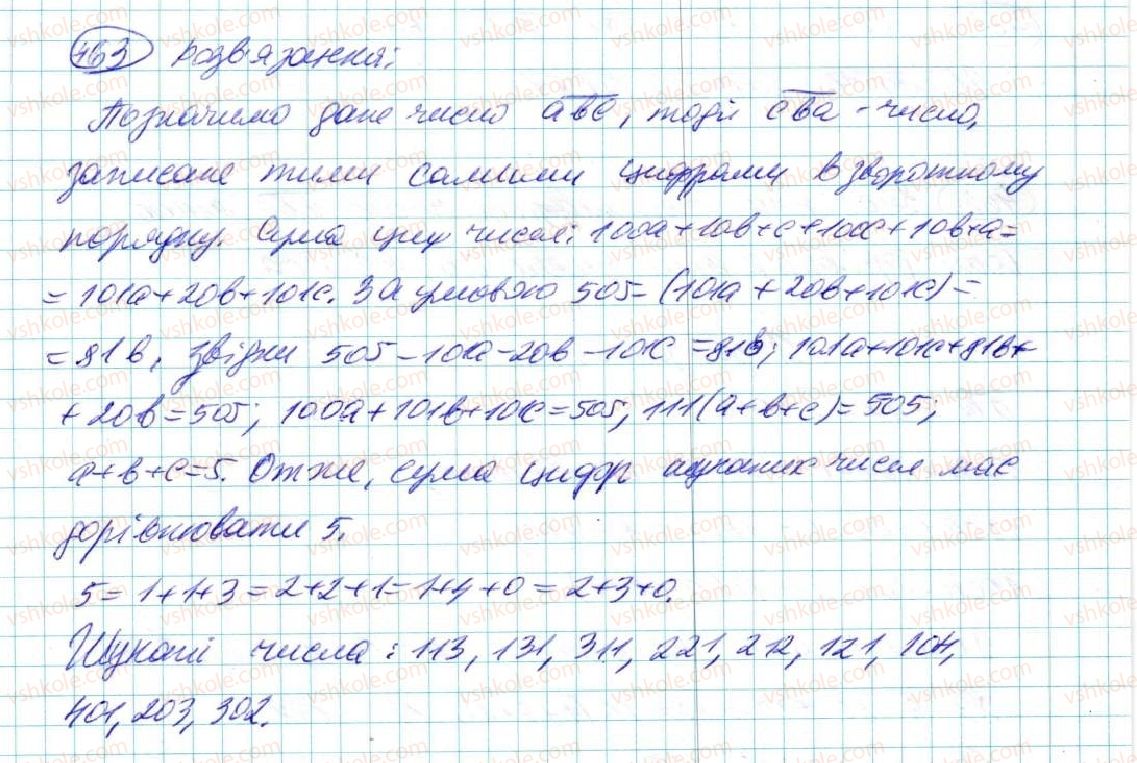 463 Розв'язання:
Позначимо дане число авс, тоді сва - число,
записане тими самими цифрами в зворотному
порядку. Сума цих чисел: 100а+10в+с+100с+10в+а=
= 101а+20в+101с. За умовою 505-(101а+20в+101с)=
= 81в, звідки 505-101а-20в-101с=81в; 101а+101с+81в+
+20в=505; 100а+101в+101с=505, 111(а+в+с)=505;
а+в+с=5. Отже, сума цифр шуканих чисел має
дорівнювати 5.
5=1+1+3=2+2+1=1+4+0=2+3+0.
Шукані числа: 113, 131, 311, 221, 212, 121, 104,
401, 203, 302.